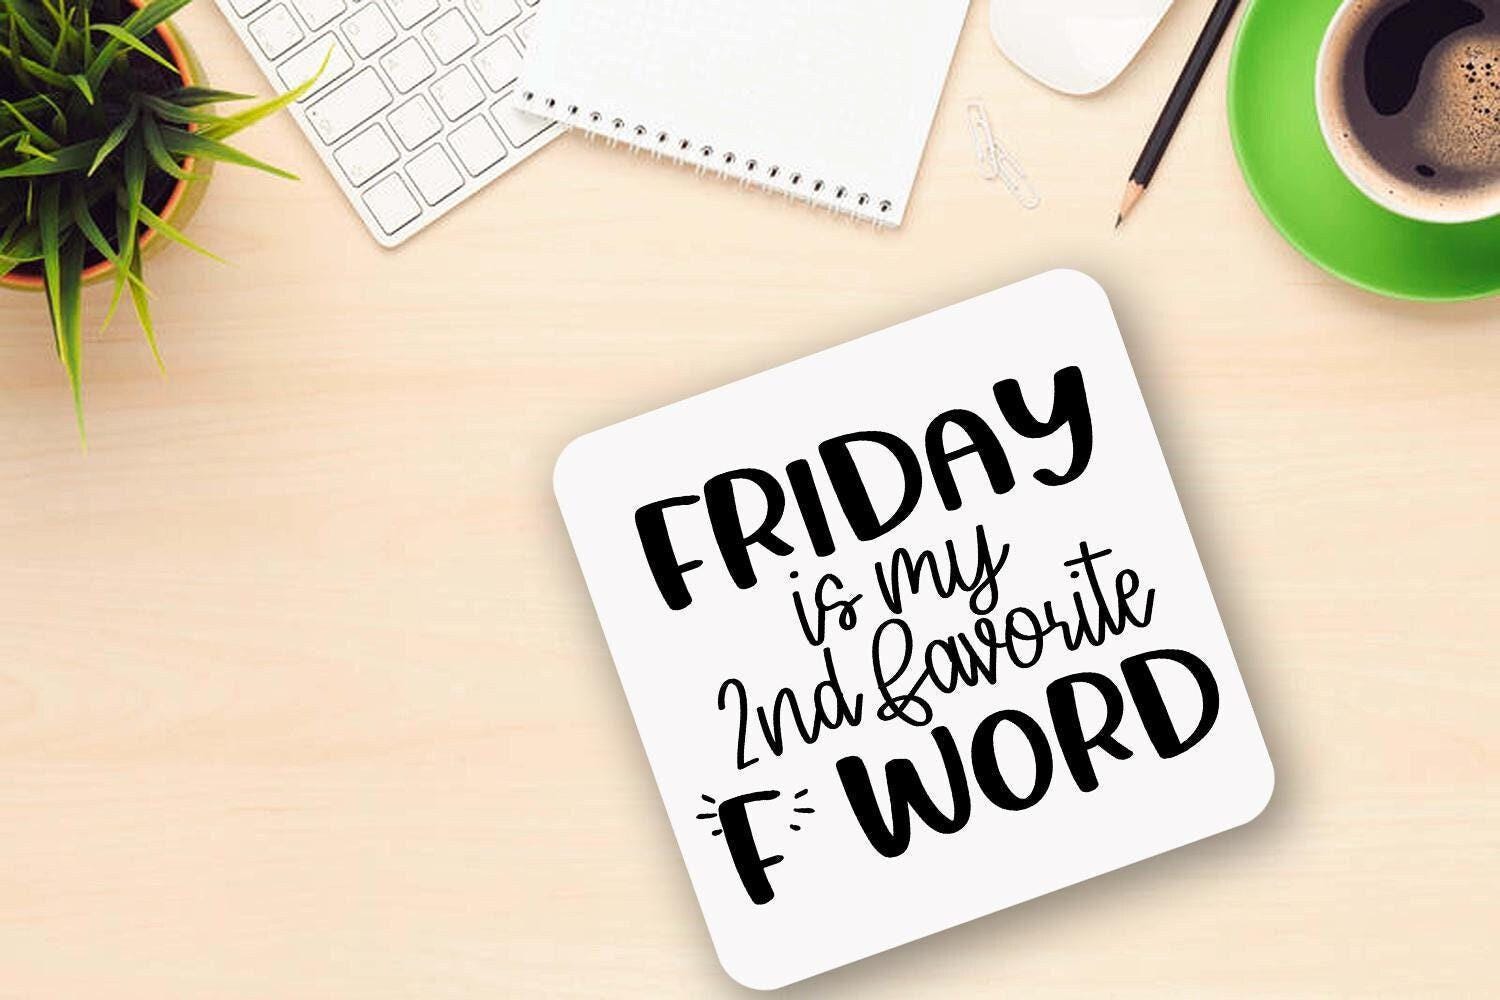 FRIDAY
is my
2nd favorite
F WORD